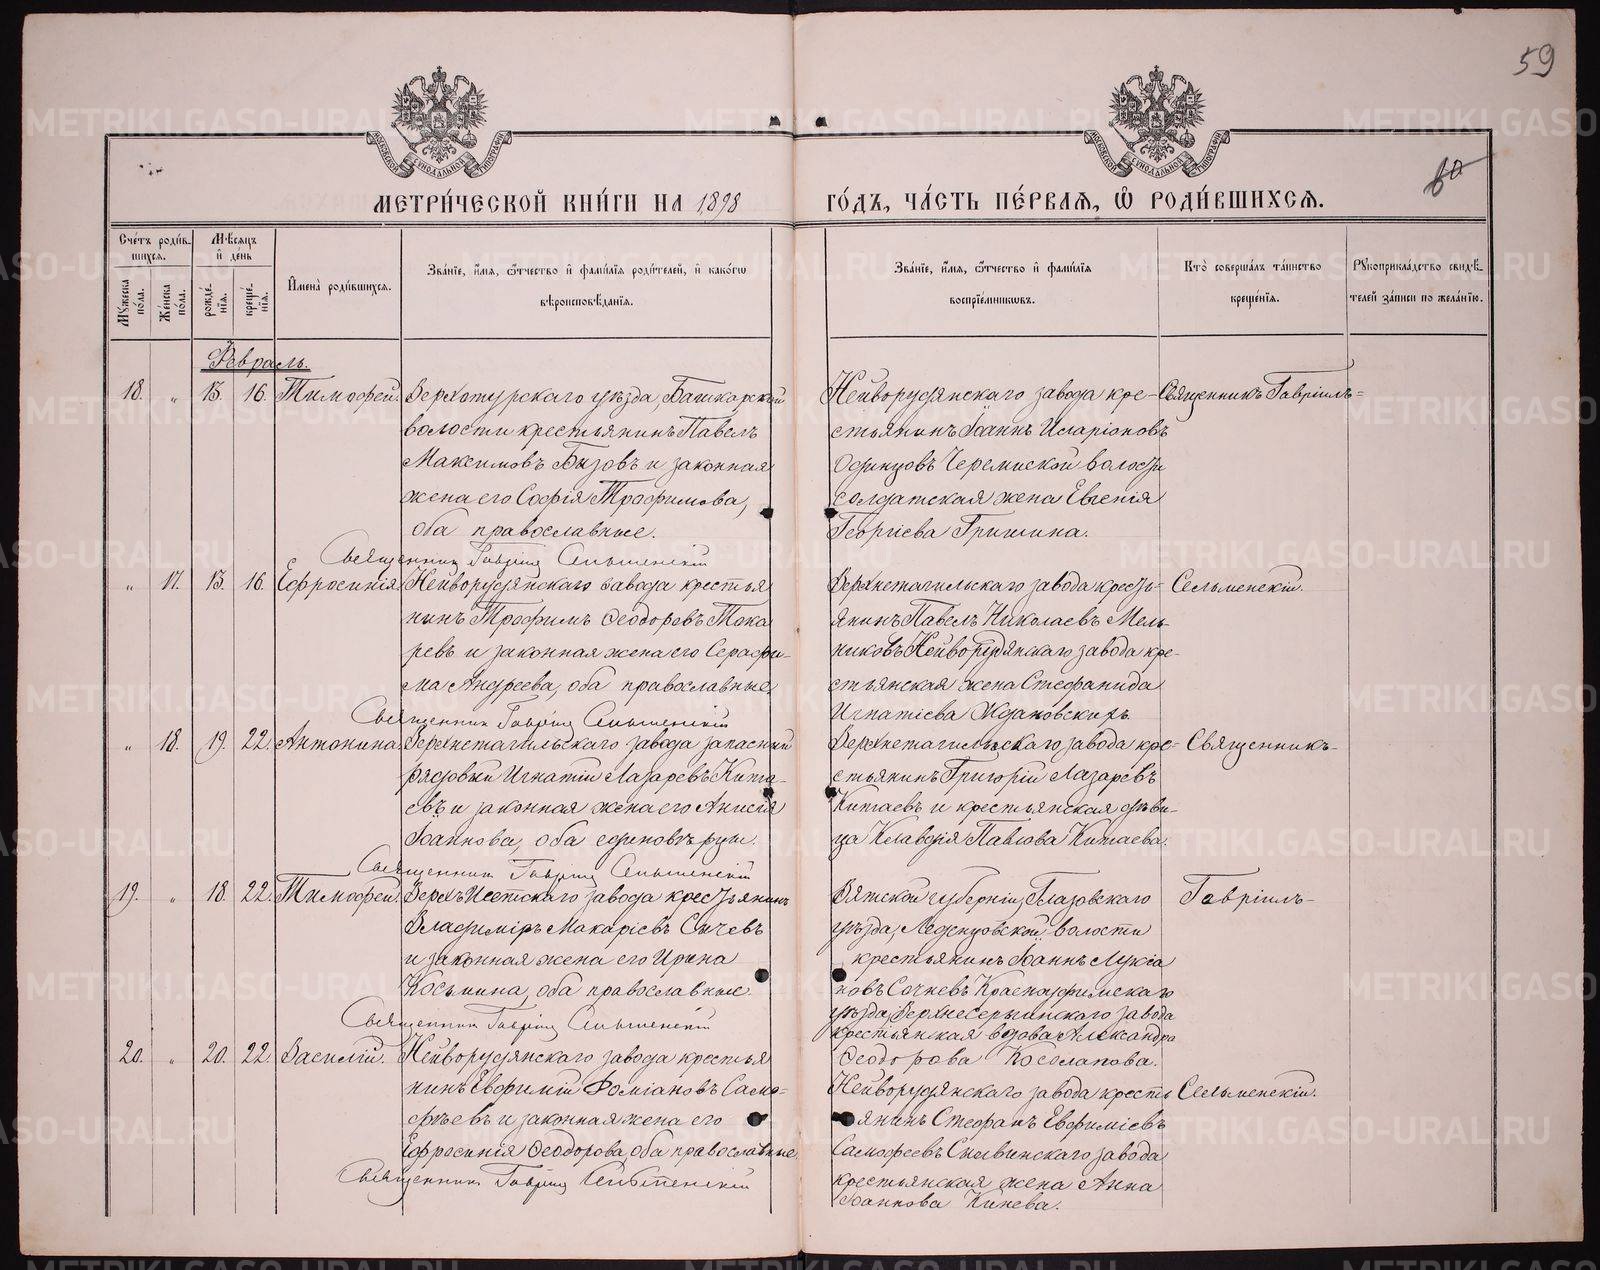 59
60
МЕТРИ́ЧЕСКОЙ КНИ́ГИ НА 1898
ГО́ДЪ, ЧА́СТЬ ПЕ́РВАЯ, Ѽ РОДИ́ВШИХСЯ.
Сче́тъ роди́в-
шихся.
Му́жеска по́ла.
Же́нска по́ла.
Мѣ́сяцъ и де́нь
рожде́нїя.
креще́нїя.
И҆мена̀ роди́вшихся.
Зва́нїе, и҆́мя, ѻ҆́тчество и҆ фами́лїя роди́телей, и҆ како́гѡ
вѣроисповѣ́данїя.
Зва́нїе, и҆́мя, ѻ҆́тчество и҆ фами́лїя
воспрїе́мникѡвъ.
Кто̀ соверша́лъ та́инство
креще́нїя.
Рꙋкоприкла́дство свидѣ́-
телей за́писи по жела́нїю.
Февраль.
18. „ 15. 16. Тимофей. Верхотурскаго уѣзда, Башкарской
волости крестьянинъ Павелъ
Максимовъ Бызовъ и законная
жена его Софія Трофимова,
оба православные.
Священникъ Гавріилъ Сельменскій
Нейворудянскаго завода кре-
стьянинъ Іоаннъ Иларіоновъ
Одинцовъ Черемиской волости
солдатская жена Евгенія
Георгіева Гришина.
Священникъ Гавріилъ=
„ 17. 15. 16. Ефросинія. Нейворудянскаго завода крестья
нинъ Трофимъ Ѳеодоревъ Тока
ревъ и законная жена его Серафи-
ма Андреева, оба православные
Священникъ Гавріилъ Сельменскій
Верхнетагильскаго завода кресть-
янинъ Павелъ Николаевъ Мель
никовъ Нейворудянскаго завода кре-
стьянская жена Стефанида
Игнатіева Ждановскихъ.
Сельменскій.
„ 18. 19. 22. Антонина. Верхнетагильскаго завода запасный
рядовый Игнатій Лазаревъ Кита-
евъ и законная жена его Анисія
Іоаннова, оба единовѣрцы.
Священникъ Гавріилъ Сельменскій
Верхнетагильскаго завода кре-
стьянинъ Григорій Лазаревъ
Китаевъ и крестьянская дѣви-
ца Клавдія Павлова Китаева.
Священникъ-
19. „ 18. 22. Тимофей. Верхъ Исетскаго завода крестьянинъ
Владиміръ Макаріевъ Сычевъ
и законная жена его Ирина
Косьмина, оба православные.
Священникъ Гавріилъ Сельменскій
Вятской губерніи, Глазовскаго
уѣзда, Леденцовской волости
крестьянинъ Іоаннъ Лукіа
новъ Сочневъ Красноуфимскаго
уѣзда, Верхнесергинскаго завода
крестьянская вдова Александра
Ѳеодорова Косолапова.
Гавріилъ-
20. „ 20. 22. Василій. Нейворудянскаго завода крестья
нинъ Евфимій Ѳоміановъ Само-
фѣевъ и законная жена его
Ефросинія Ѳеодорова, оба православные
Священникъ Гавріилъ Сельменскій
Нейворудянскаго завода кресть
янинъ Стефанъ Евфиміевъ
Самофеевъ Сылвинскаго завода
крестьянская жена Анна
Іоаннова Кинева.
Сельменскій.
METRIKI.GASO-URAL.RU